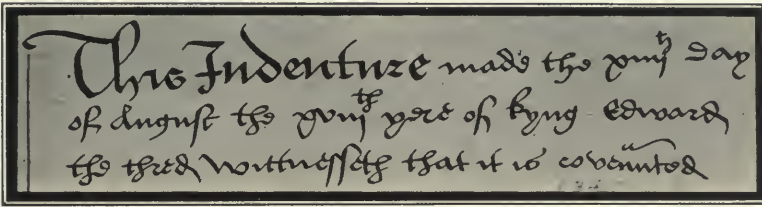 This Indenture made the xiiij th day
of August the xviij th yere of kyng Edward
the thred wittnesseth that it is covennted